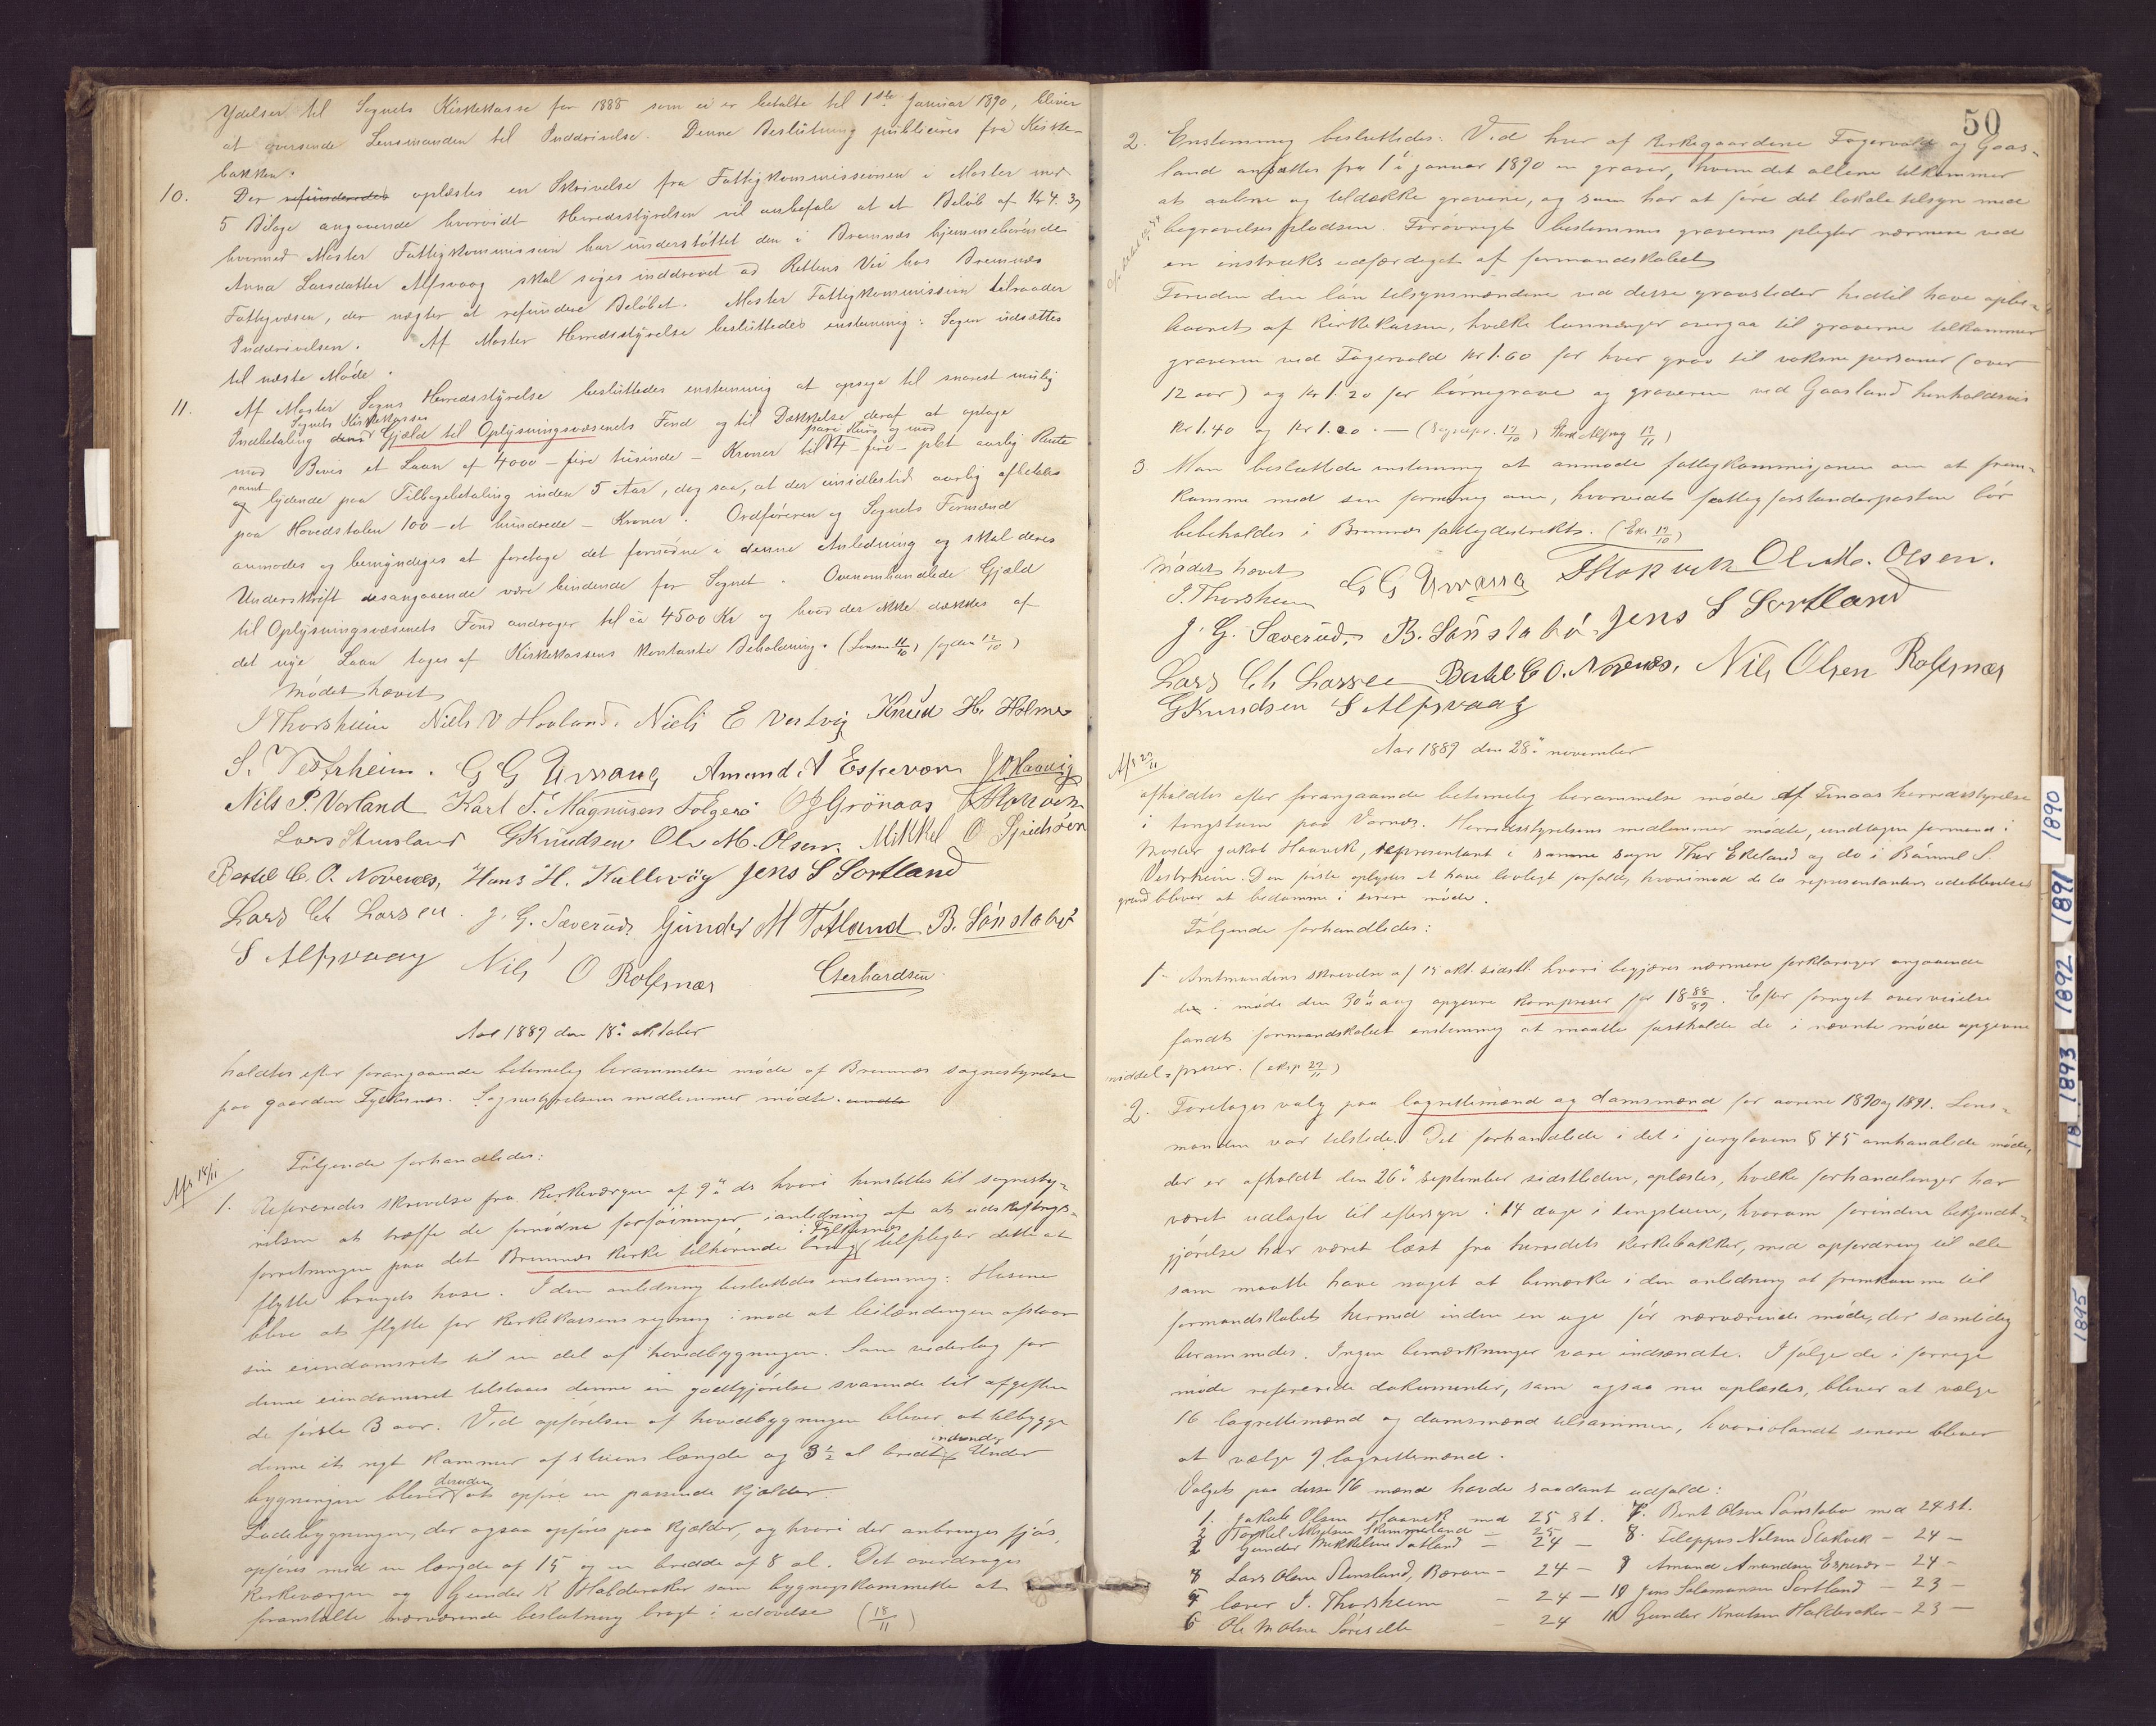 Ydelser til Sognets Kirkekasse for 1888 som ei er betalte til 1ste Januar 1890, bliver
at oversende Lensmanden til Inddrivelse. Denne Beslutning publiceres fra Kirke-
bakken.
10. Der refunderedes oplæstes en Skrivelse fra Fattigkommissionen i Moster med
5 Bilage angaaende hvorvidt Herredsstyrelsen vil anbefale at et Beløb af Kr 4.37
hvormed Moster Fattigkommission har understøttet den i Bremnes hjemmehørende
Anna Larsdatter Alfsvaag skal søges inddrevet ad Rettens Vei hos Bremnes
Fattigvæsen, der nægter at refundere Beløbet. Moster Fattigkommission tilraader
Inddrivelsen. Af Moster Herredsstyrelse besluttedes enstemmig: Sagen udsættes
til næste Møde.
11. Af Moster Sogns Herredsstyrelse besluttedes enstemmig at opsige til snarest mulig
Sognets Kirkekasses
Indbetaling Gjæld til Oplysningsvæsenets Fond og til Dækkelse deraf at optage
pari Kurs og mod
mod Bevis et Laan af 4000 - fire tusinde - Kroner til 4 - fire - pct aarlig Rente
samt
og lydende paa Tilbagebetaling inden 5 Aar, dog saa, at der imidlertid aarlig afbetales
paa Hovedstolen 100 - et hundrede - Kroner. Ordføreren og Sognets Formænd
anmodes og bemyndiges at foretage det fornødne i denne Anledning og skal deres
Underskrift desangaaende være bindende for Sognet. Ovenomhandlede Gjæld
til Oplysningsvæsenets Fond andrager til ca 4500 Kr og hvad der ikke dækkes af
det nye Laan tages af Kirkekassens kontante Beholdning. (Lensm 11/10, 12/10)
Mødet hævet
J Thorsheim Niels V Hovland. Niels E Vestvig Knud H. Holme
S. Vestrheim. G G Urvang Amund A Espevær J O Haavig
Nils P. Vorland Karl T. Magnusen Folgerø O J Grønaas F Stokvik
Lars Stensland G Knudsen Ole M. Olsen. Mikkel O Gjertsøen
Bertel C. O. Novenes, Hans H. Kallevåg Jens S Sortland
Lars Ch Larsen. J. G. Sæverud. Gunder M Totland B. Sønstabø
S Alfsvaag Nils O Rolfsnes Gerhardsen.
Aar 1889 den 18de oktober
holdtes efter forangaaende betimelig berammelse møde af Bremnes sognestyrelse
paa gaarden Fylkesnes. Sognestyrelsens medlemmer mødte.
Følgende forhandledes:
Afs 18/11
1. Refereredes skrivelse fra kirkeværgen af 9de ds hvori henstilles til sognesty-
relsen at træffe de fornødne forføininger i anledning af at udskiftnings-
i Fylkesnes
forretningen paa det Bremnes kirke tilhørende brug tilpligter dette at
flytte brugets huse. I den anledning besluttedes enstemmig: Husene
blive at flytte for kirkekassens regning imod at leilændingen afstaar
sin eiendomsret til en del af hovedbygningen. Som vederlag for
denne eiendomsret tilstaaes denne en godtgjørelse svarende til afgiften
de første 3 aar. Ved opførelsen af hovedbygningen bliver at tilbygge
indvendig
denne et nyt kammer af stuens længde og 3½ al bredt. Under
desuden
bygningen bliver at opføre en passende kjælder.
Ladebygningen, der ogsaa opføres paa kjælder, og hvori der anbringes fjøs,
opføres med en længde af 15 og en bredde af 8 al. Det overdrages
kirkeværgen og Gunder K Habderaker som bygningskommitte at
foranstalte nærværende beslutning bragt i udøvelse (18/11)
50
2. Enstemmig besluttedes: Ved hver af kirkegaardene Fagervold og Gaas-
land ansættes fra 1te januar 1890 en graver, hvem det allene tilkommer
at aabne og tildække gravene, og som har at føre det lokale tilsyn med
begravelsespladsen. Forøvrigt bestemmes graverens pligter nærmere ved
en instruks udfærdiget af formandskabet
Foruden den løn tilsynsmændene ved disse gravsteder hidtil have oppe-
baaret af kirkekassen, hvilke lønninger overgaa til graverne tilkommer
graveren ved Fagervold kr 1.60 for hver grav til voksne personer (over
12 aar) og kr 1.20 for børnegrave og graveren ved Gaasland henholdsvis
kr 1.40 og kr 1.20. — (Sognepr. 19/10) Alfsvag 19/11)
3. Man besluttede enstemmig at anmode fattigkommisjonen om at frem-
komme med sin formening om, hvorvidt fattigforstanderposten bør
bebeholdes i Bremnes fattigdistrikt. (Eks 19/10)
Mødet hævet
J. Thorsheim G G Urvang F Stokvik Ole M. Olsen.
J. G. Sæverud. B. Sønstabø. Jens S Sortland
Lars Ch Larsen Bertel C O. Novenes, Nils Olsen Rolfsnes
G Knudsen S Alfsvaag
Aar 1889 den 28de november
Afs 29/11
afholdtes efter forangaaende betimelig berammelse møde af Finaas herredsstyrelse
i tingstuen paa Vornes. Herredsstyrelsens medlemmer mødte, undtagen formand i
Moster Jakob Haavik, representant i samme sogn Thor Ekeland og do i Bømmel S.
Vestrheim. Den første oplystes at have lovligt forfald, hvorimod de to representanters udeblivelses
grund bliver at bedømme i senere møde.
Følgende forhandledes:
1. Amtmandens skrivelse af 19 okt. sidstl. hvori begjæres nærmere forklaringer angaaende
de i møde den 30te aug opgivne kornpriser for 1888/89. Efter fornyet overveielse
fandt formandskabet enstemmig at maatte fastholde de i nævnte møde opgivne
middelspriser. (eksp. 29/11)
2. Foretoges valg paa lagrettemænd og domsmænd for aarene 1890 og 1891. Lens-
manden var tilstede. Det forhandlede i det i jurylovens § 45 omhandlede møde,
der er afholdt den 26de september sidstleden, oplæstes, hvilke forhandlinger har
været udlagte til eftersyn i 14 dage i tingstuen, hvorom forinden bekjendt-
gjørelse har været læst fra herredets kirkebakker, med opfordring til alle
som maatte have noget at bemærke i den anledning at fremkomme til
formandskabet hermed inden en uge før nærværende møde, der samtidig
berammedes. Ingen bemærkninger vare indsendte. Ifølge de i forrige
møde refererede dokumenter, som ogsaa nu oplæstes, bliver at vælge
16 lagrettemænd og domsmænd tilsammen, hvoriblandt senere bliver
at vælge 9 lagrettemænd.
Valget paa disse 16 mænd havde saadant udfald:
1. Jakob Olsen Haavik med 25 st. 7. Bernt Olsen Sønstabø med 24 st.
2 Torkel Akselsen Skimmeland — 25 — 8. Filippus Nilsen Stokvik — 24 —
3 Gunder Mikkelsen Totland — 24 — 9 Amund Amundsen Espevær — 24 —
4 Lars Olsen Stensland, Børøen — 24 — 10 Jens Salamonsen Sortland — 23 —
5 lærer J. Thorsheim — 24 — 11 Gunder Knutsen Halderaker — 23 —
6 Ole M Olsen — 24
1890
1891
1892
1893
18
1895